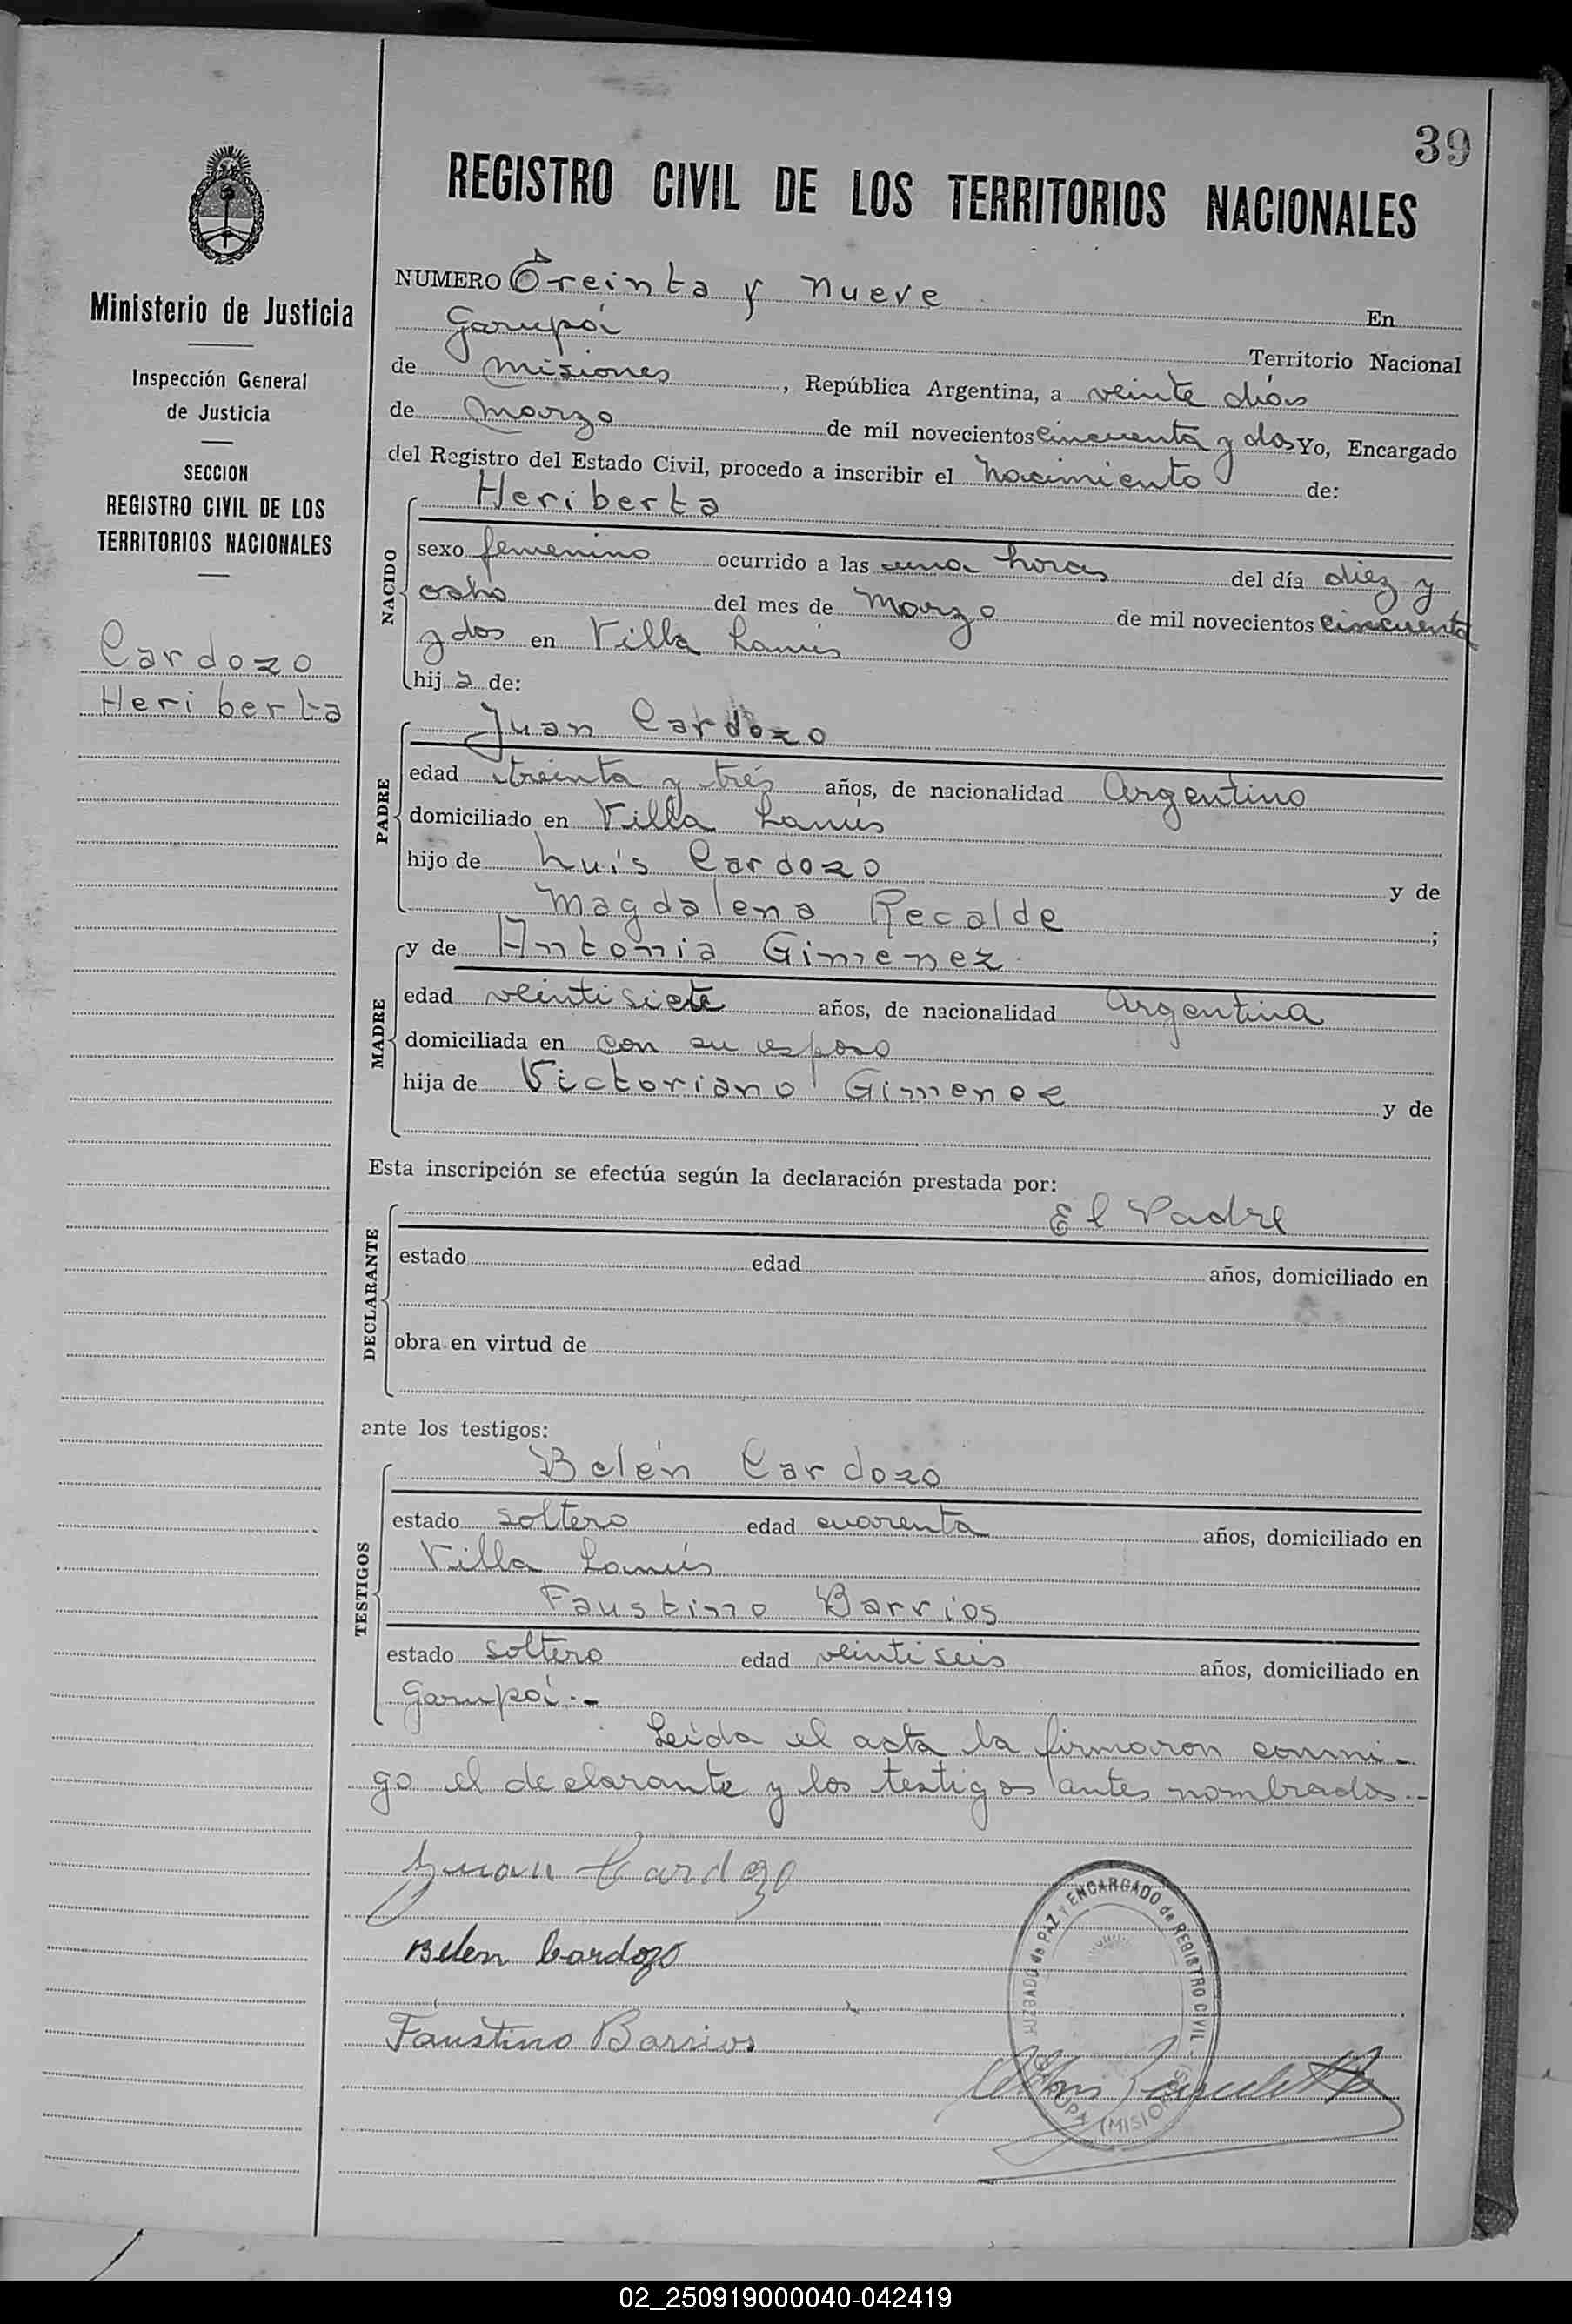 39
REGISTRO CIVIL DE LOS TERRITORIOS NACIONALES
Ministerio de Justicia
Inspección General
de Justicia
SECCION
REGISTRO CIVIL DE LOS
TERRITORIOS NACIONALES
Cardozo
Heriberta
NUMERO Treinta y nueve En
Garupá Territorio Nacional
de Misiones, República Argentina, a veinte días
de Marzo de mil novecientos cincuenta y dos Yo, Encargado
del Registro del Estado Civil, procedo a inscribir el nacimiento de:
NACIDO
Heriberta
sexo femenino ocurrido a las una horas del día diez y
ocho del mes de Marzo de mil novecientos cincuenta
y dos en Villa Lanús
hija de:
PADRE
Juan Cardozo
edad treinta y tres años, de nacionalidad Argentino
domiciliado en Villa Lanús
hijo de Luis Cardozo y de
Magdalena Recalde;
MADRE
y de Antonia Gimenez
edad veintisiete años, de nacionalidad Argentina
domiciliada en con su esposo
hija de Victoriano Gimenez y de
Esta inscripción se efectúa según la declaración prestada por:
DECLARANTE
El Padre
estado edad años, domiciliado en
obra en virtud de
ante los testigos:
TESTIGOS
Belén Cardozo
estado soltero edad cuarenta años, domiciliado en
Villa Lanús
Faustino Barrios
estado soltero edad veintiseis años, domiciliado en
Garupá.-
Leída el acta la firmaron conmi-
go el declarante y los testigos antes nombrados.-
Juan Cardozo
Belen Cardozo
Faustino Barrios
JUZGADO de PAZ y ENCARGADO de REGISTRO CIVIL
GARUPA (MISIONES)
02_250919000040-042419